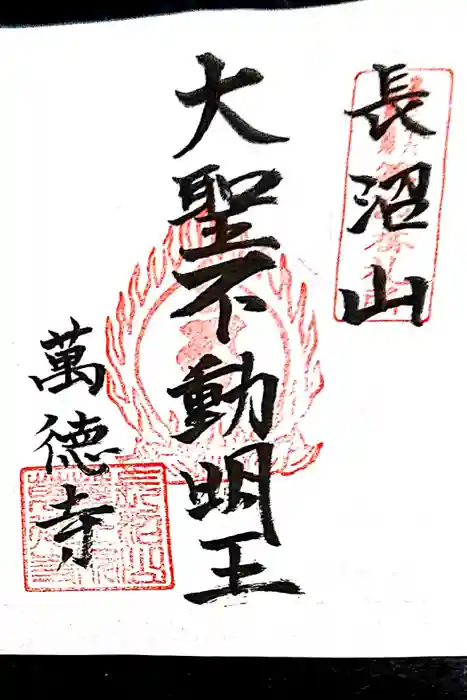 長沼山
大聖不動明王
萬徳寺